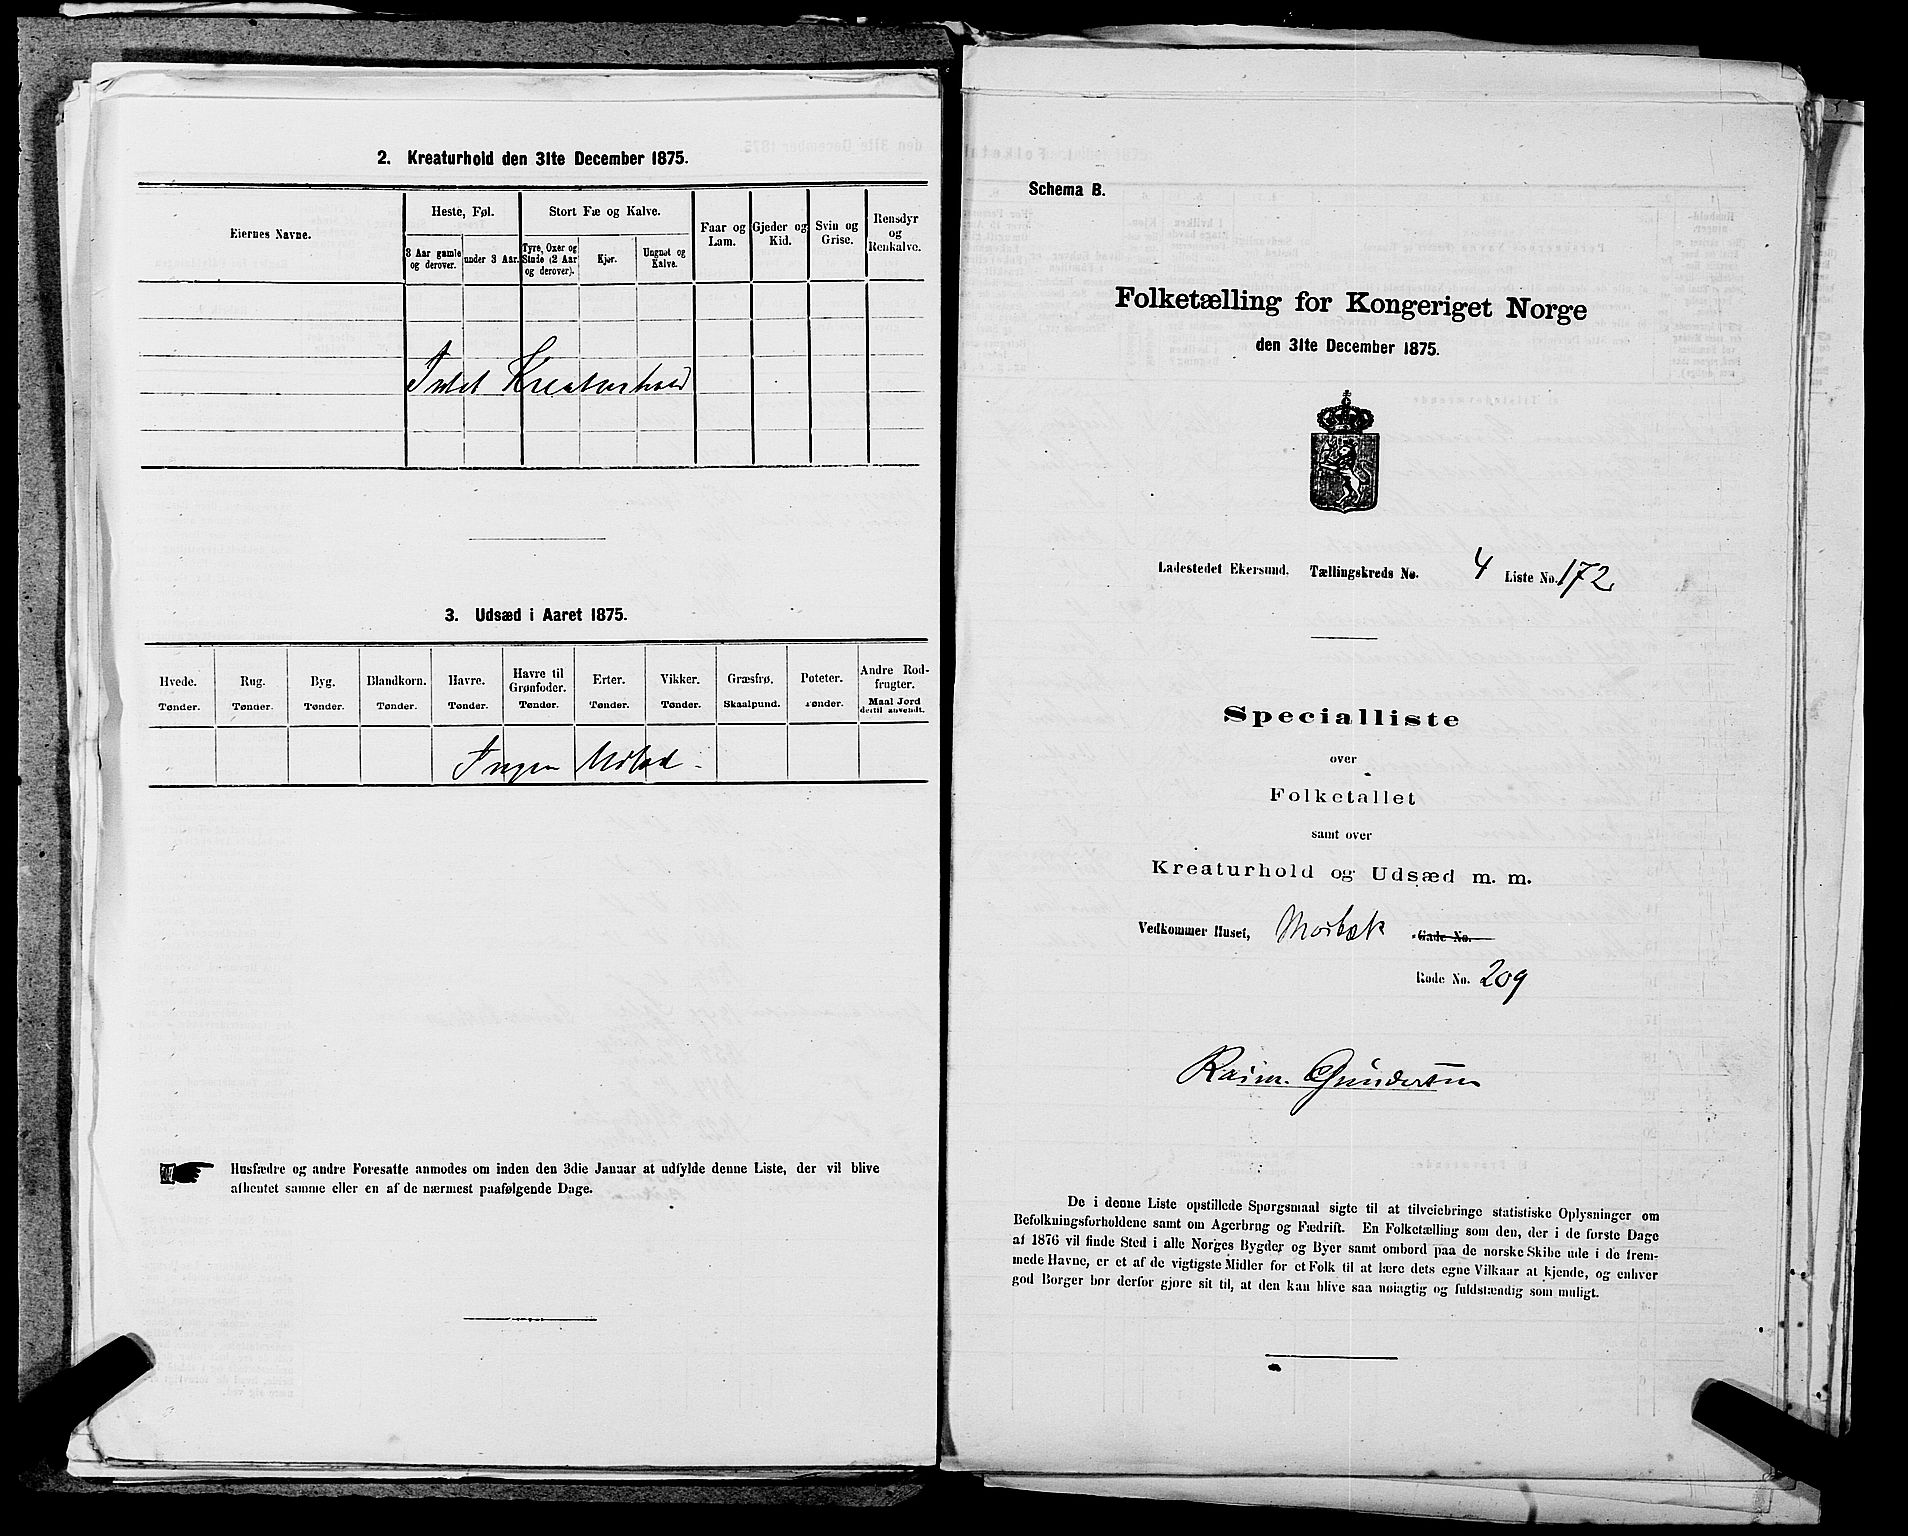 2. Kreaturhold den 31te December 1875.
Eiernes Navne.
Heste, Føl.
Stort Fæ og Kalve.
Faar og Lam.
Gjeder og Kid.
Svin og Grise.
Rensdyr og Renkalve.
3 Aar gamle og derover.
under 3 Aar.
Tyre, Oxer og Stude (2 Aar og derover).
Kjør.
Ungnøt og Kalve.
Intet Kreaturhold
3. Udsæd i Aaret 1875.
Hvede. Tønder.
Rug. Tønder.
Byg. Tønder.
Blandkorn. Tønder.
Havre. Tønder.
Havre til Grønfoder. Tønder.
Erter. Tønder.
Vikker. Tønder.
Græsfrø. Skaalpund.
Poteter. Tønder.
Andre Rodfrugter. Maal Jord dertil anvendt.
Ingen Udsæd
Husfædre og andre Foresatte anmodes om inden den 3die Januar at udfylde denne Liste, der vil blive
afhentet samme eller en af de nærmest paafølgende Dage.
Schema B.
Folketælling for Kongeriget Norge
den 31te December 1875.
Ladestedet Ekersund. Tællingskreds No. 4 Liste No. 172
Specialliste
over
Folketallet
samt over
Kreaturhold og Udsæd m. m.
Vedkommer Huset, Mosbæk Gade No.
Rode No. 209
Gundersen
De i denne Liste opstillede Spørgsmaal sigte til at tilveiebringe statistiske Oplysninger om
Befolkningsforholdene samt om Agerbrug og Fædrift. En Folketælling som den, der i de første Dage
af 1876 vil finde Sted i alle Norges Bygder og Byer samt ombord paa de norske Skibe ude i de frem-
mede Havne, er et af de vigtigste Midler for et Folk til at lære dets egne Vilkaar at kjende, og enhver
god Borger bør derfor gjøre sit til, at den kan blive saa nøiagtig og fuldstændig som muligt.